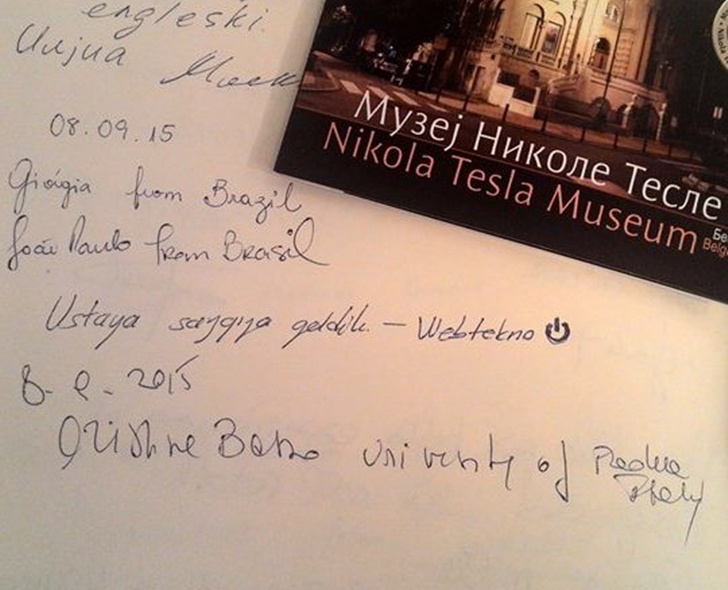 engleski.
08.09.15
Giórgia from Brazil
João Paulo from Brasil
Ustaya saygıya geldik. – Webtekno
8-9-2015
University of Padua
Italy
Музеј Николе Тесле
Nikola Tesla Museum